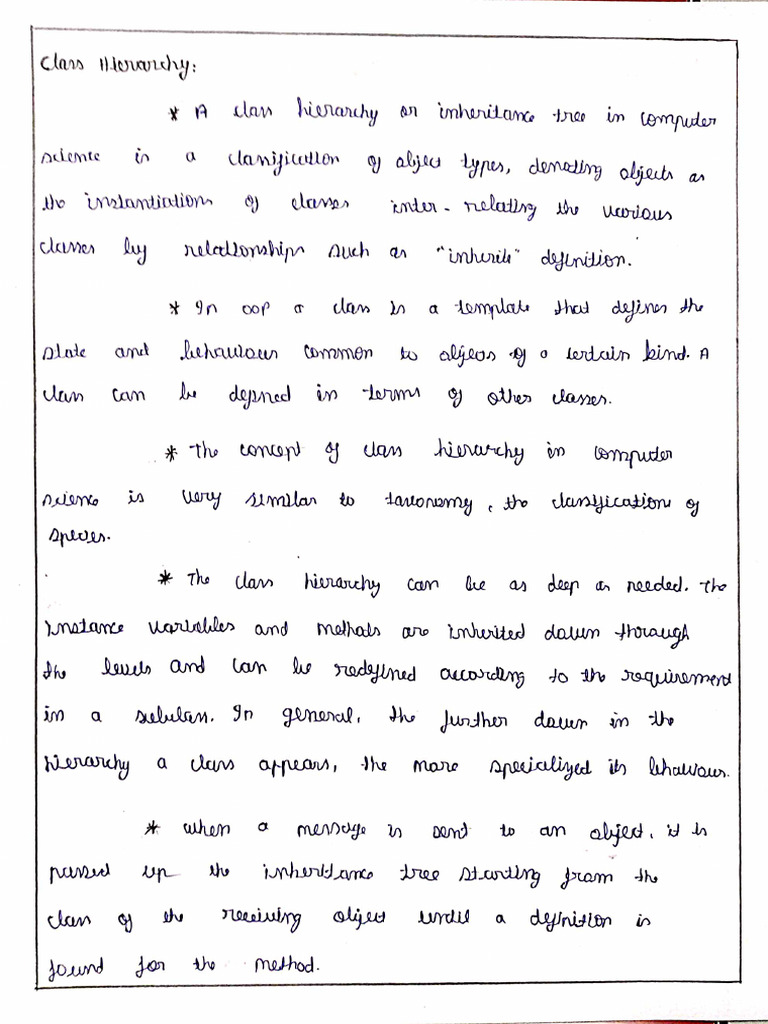 Class Hierarchy:
* A class hierarchy or inheritance tree in computer
science is a classification of object types, denoting objects as
the instantiations of classes inter-relating the various
classes by relationships such as "inherits" definition.
* In OOP a class is a template that defines the
state and behaviour common to objects of a certain kind. A
class can be defined in terms of other classes.
* The concept of class hierarchy in computer
science is very similar to taxonomy, the classifications of
species.
* The class hierarchy can be as deep as needed. The
instance variables and methods are inherited down through
the levels and can be redefined according to the requirement
in a subclass. In general, the further down in the
hierarchy a class appears, the more specialized its behaviour.
* when a message is sent to an object, it is
passed up the inheritance tree starting from the
class of the receiving object until a definition is
found for the method.